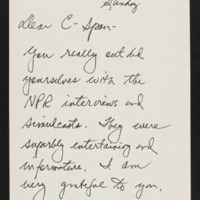 Sunday
Dear C-Span-
You really out did
yourselves with the
NPR interviews and
simulcasts. They were
superbly entertaining and
informative. I am
very grateful to you.